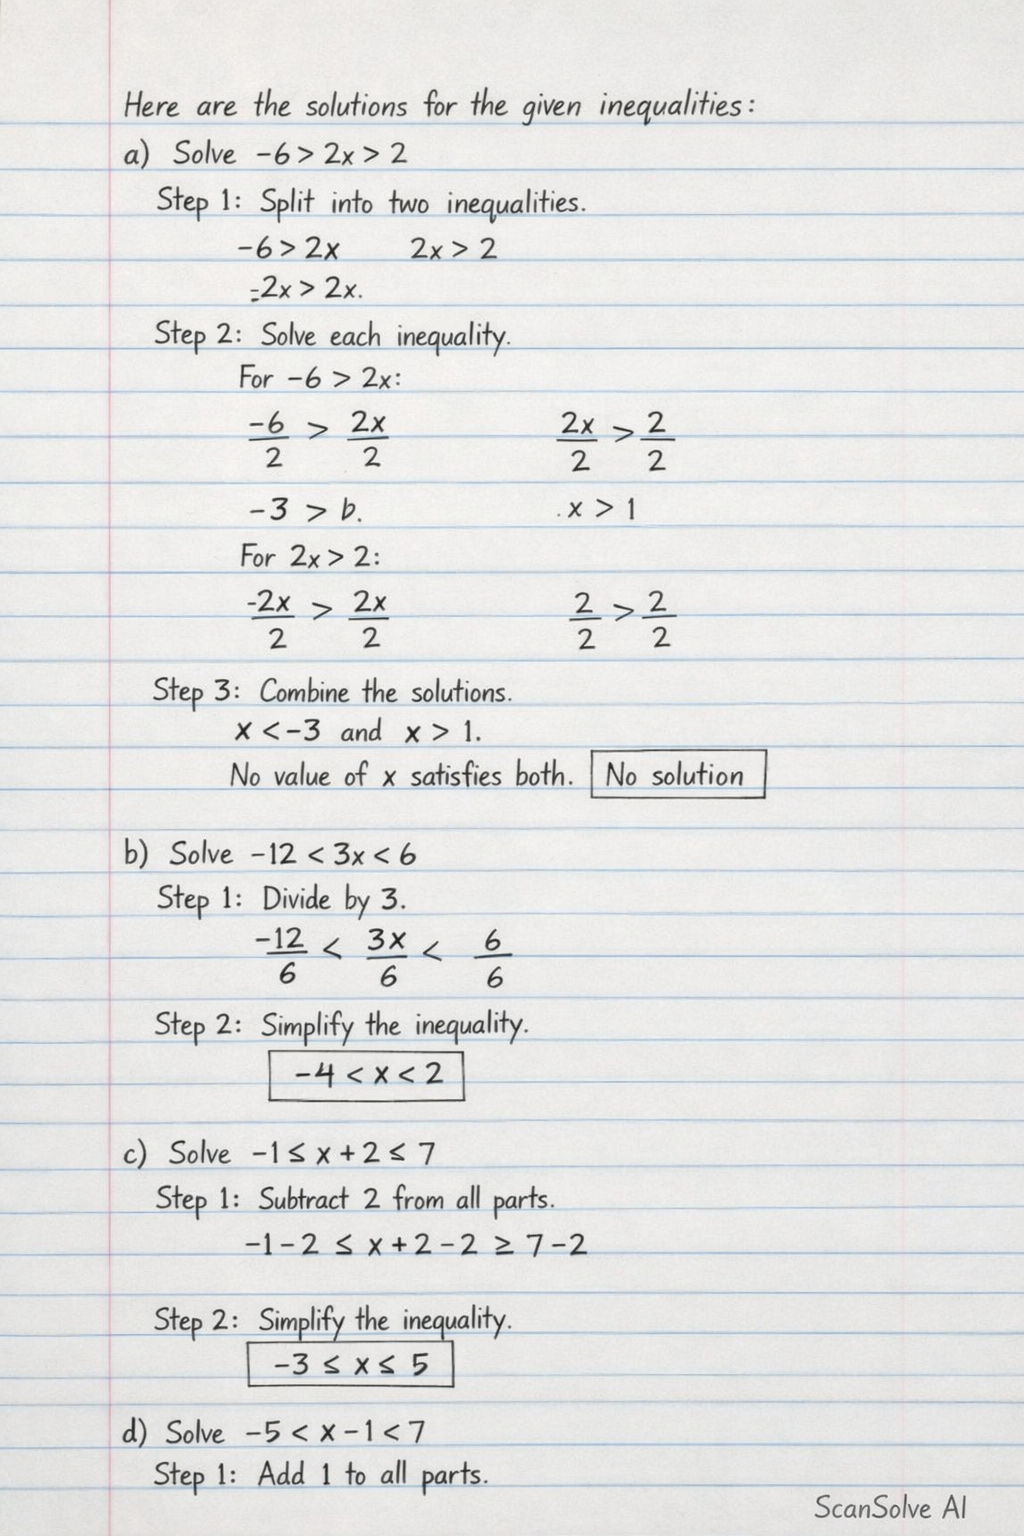 Here are the solutions for the given inequalities:
a) Solve -6 > 2x > 2
Step 1: Split into two inequalities.
-6 > 2x 2x > 2
-2x > 2x.
Step 2: Solve each inequality.
For -6 > 2x:
-6/2 > 2x/2 2x/2 > 2/2
-3 > b. .x > 1
For 2x > 2:
-2x/2 > 2x/2 2/2 > 2/2
Step 3: Combine the solutions.
x < -3 and x > 1.
No value of x satisfies both. No solution
b) Solve -12 < 3x < 6
Step 1: Divide by 3.
-12/6 < 3x/6 < 6/6
Step 2: Simplify the inequality.
-4 < x < 2
c) Solve -1 ≤ x + 2 ≤ 7
Step 1: Subtract 2 from all parts.
-1 - 2 ≤ x + 2 - 2 ≥ 7 - 2
Step 2: Simplify the inequality.
-3 ≤ x ≤ 5
d) Solve -5 < x - 1 < 7
Step 1: Add 1 to all parts.
ScanSolve AI